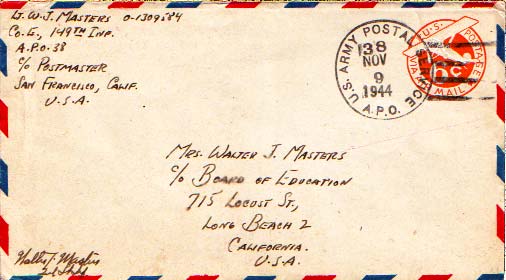 Lt. W. J. Masters O-1309584
Co. E, 149th Inf.
A.P.O. 38
c/o Postmaster
San Francisco, Calif.
U.S.A.
U.S. ARMY POSTAL SERVICE
38
NOV
9
1944
A.P.O.
U.S. POSTAGE
6c
VIA AIR MAIL
Mrs. Walter J. Masters
c/o Board of Education
715 Locust St.,
Long Beach 2
California.
U.S.A.
Walter J. Masters